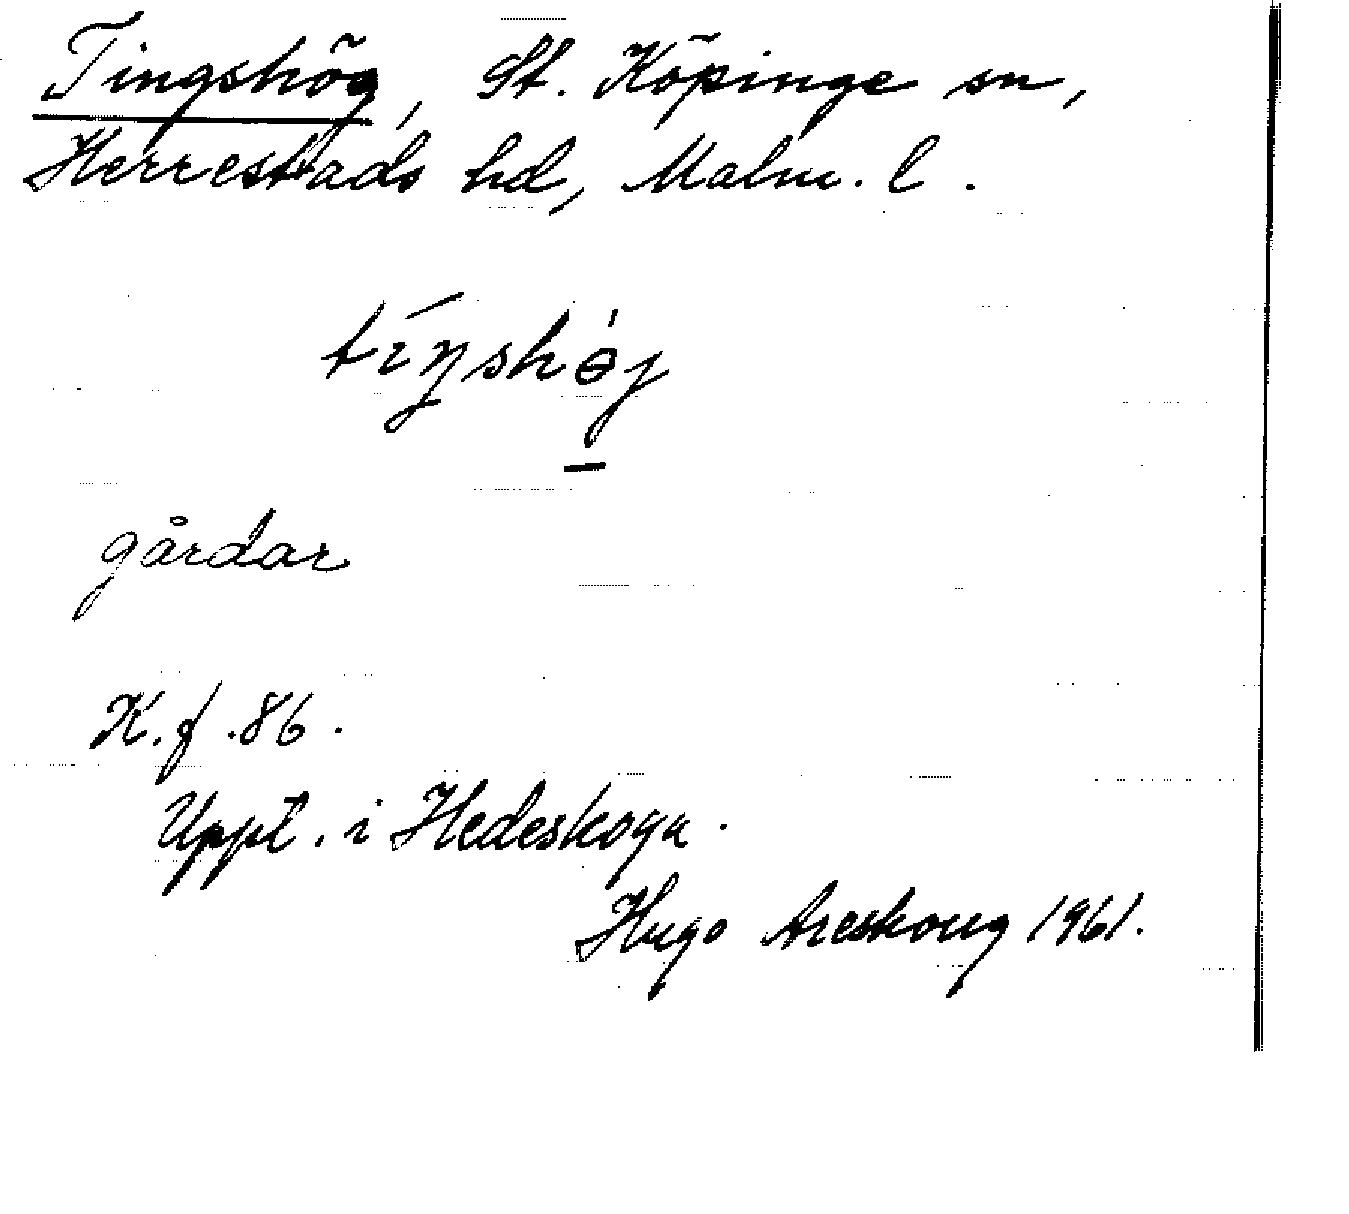 Tingshög, St. Köpinge sn,
Herrestads hd, Malm. l.
tíŋshɵ̀j
gårdar
K.f.86.
Uppt. i Hedeskoga.
Hugo Areskoug 1961.